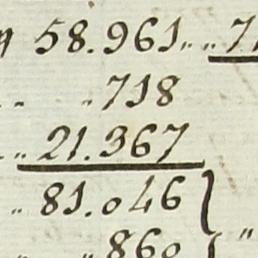 58.961.. .. 7
.. .. 718
.. .. 21.367
.. 81.046
.. .. 860 "